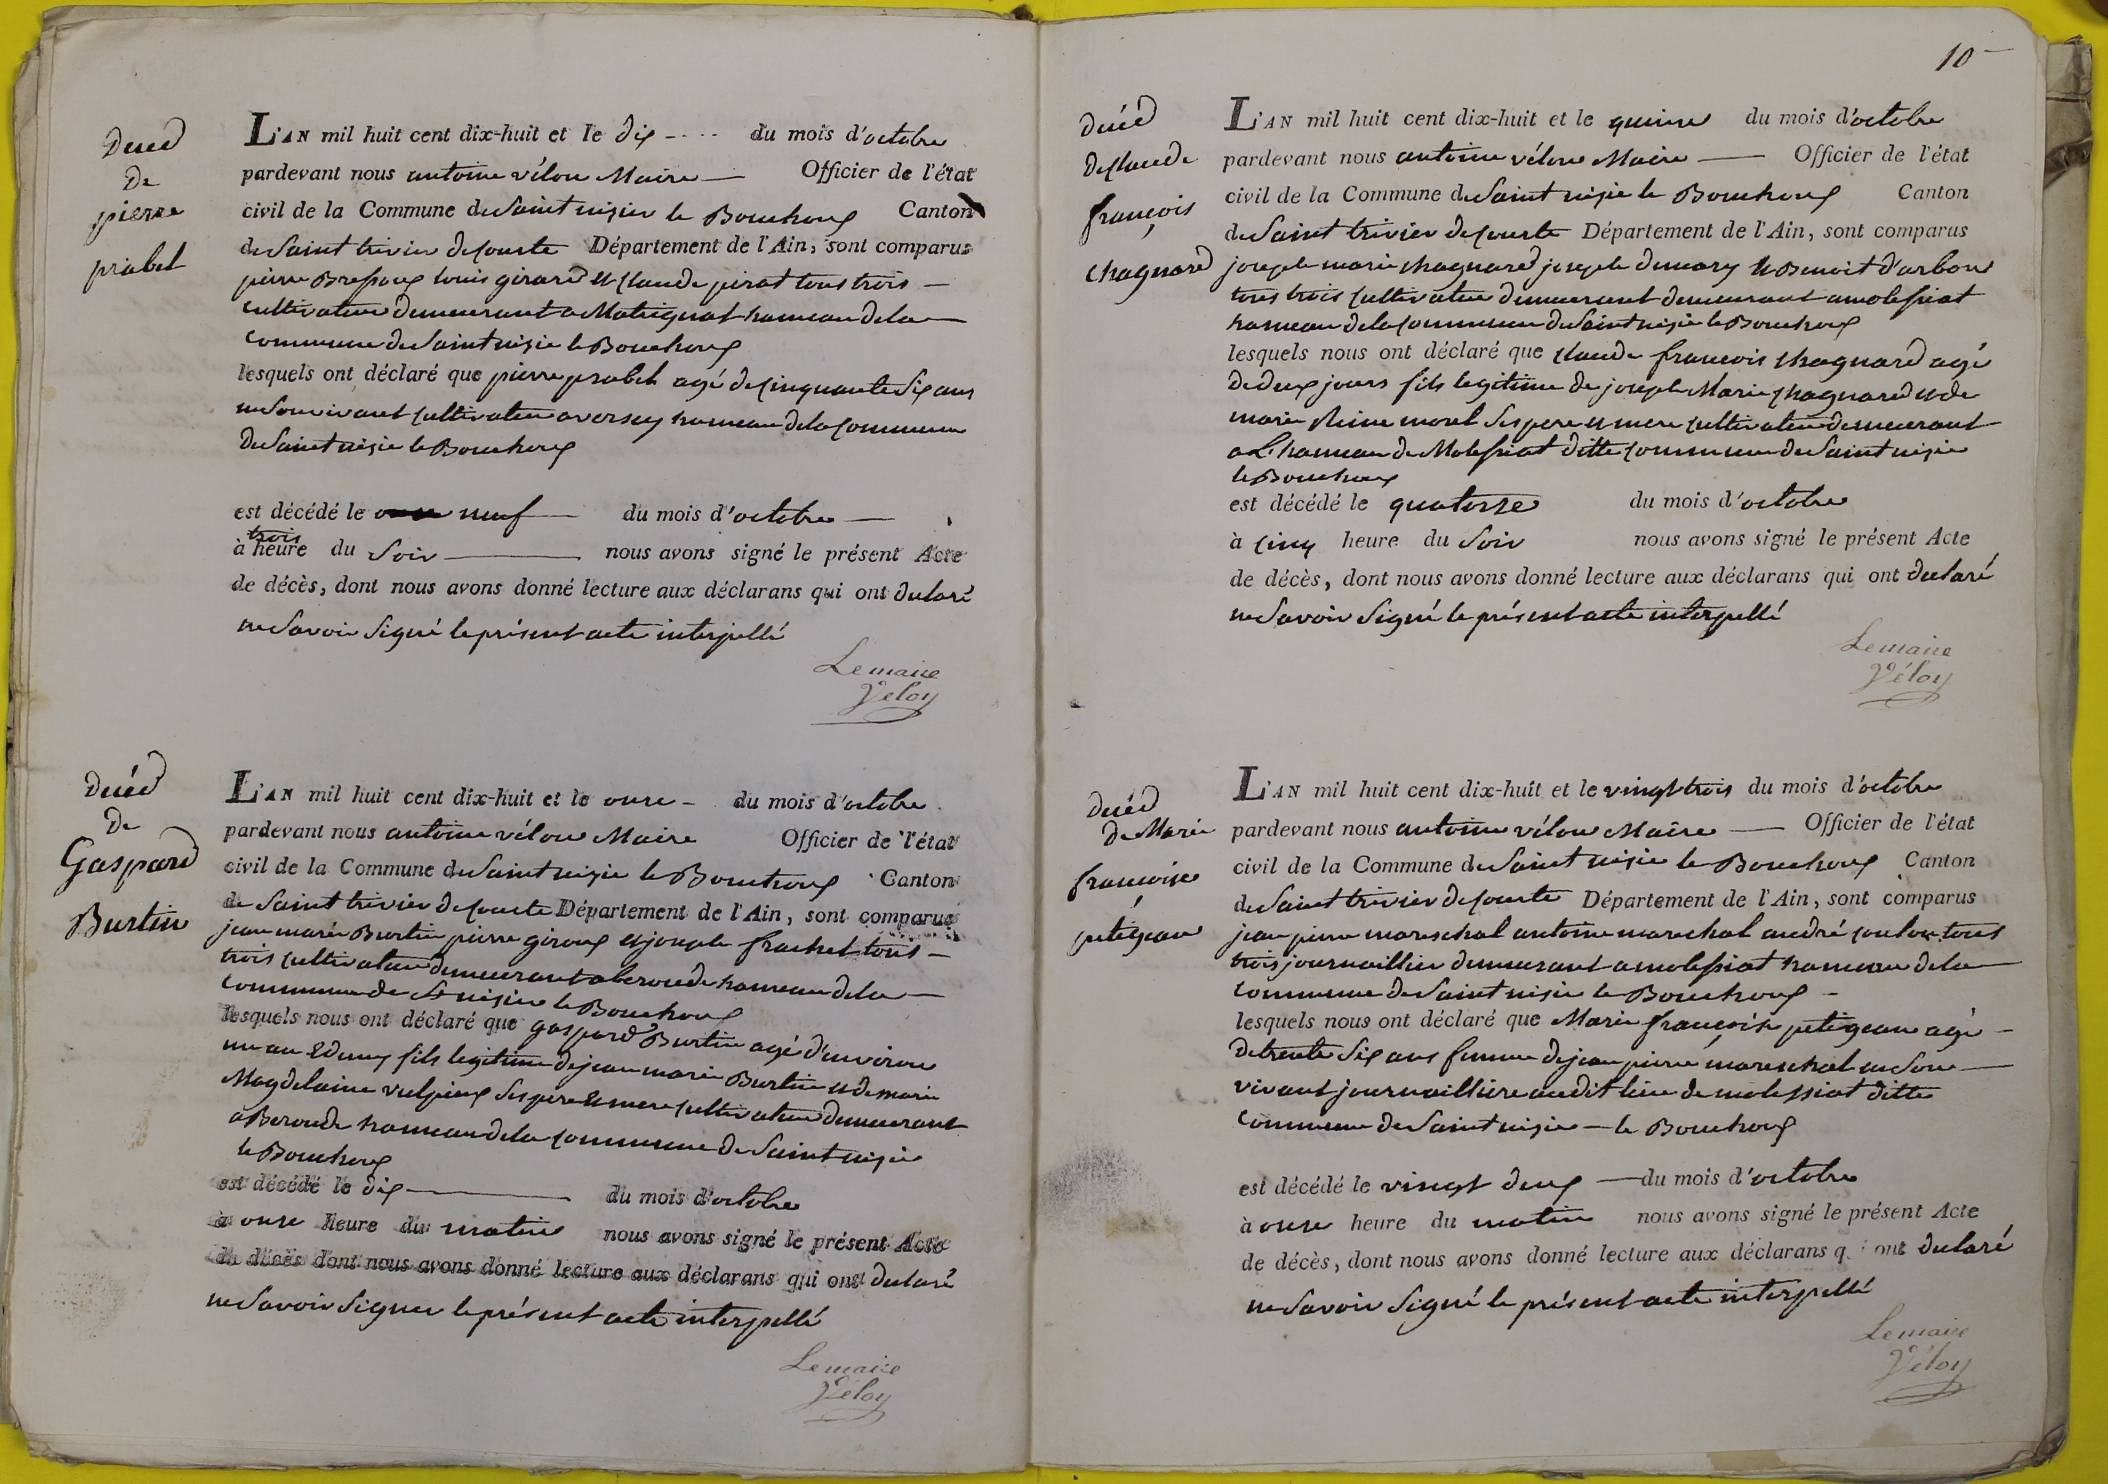 décéd
de
pierre
probet
L'AN mil huit cent dix-huit et le dix - - - - du mois d'octobre
pardevant nous antoine vélon Maire — Officier de l'état
civil de la Commune de Saint nizier le Bouchoux Canton
de Saint trivier de courte Département de l'Ain, sont comparus
pierre Bressoux louis girard et claude pirat tous trois —
cultivateur demeurant a Matignat hameau de la —
commune de Saint nizie le Bouchoux
lesquels ont déclaré que pierre probet agé de cinquante six ans
en son vivant cultivateur a hameau de la commune
de Saint nizie le Bouchoux
est décédé le neuf — du mois d'octobre —
trois
à heure du Soir — nous avons signé le présent Acte
de décès, dont nous avons donné lecture aux déclarans qui ont déclaré
ne Savoir Signé le présent acte interpellé
Le maire
Véloy
décéd
de
Gaspard
Burtin
L'AN mil huit cent dix-huit et le onze - du mois d'octobre
pardevant nous antoine vélon Maire Officier de l'état
civil de la Commune de Saint nizie le Bouchoux Canton
de Saint trivier de courte Département de l'Ain, sont comparus
jean marie Burtin pierre giroux et joseph frachet tous —
trois cultivateur demeurant a beroude hameau de la —
commune de St nizier le Bouchoux
lesquels nous ont déclaré que gaspard Burtin agé d'environ
un an &demy fils legitime de jean marie Burtin et de marie
Magdelaine vulpieux Ses pere & mere cultivateur demeurant
a Beroude hameau de la commune de Saint nizie
le Bouchoux
est décédé le dix — du mois d'octobre
à onze heure du matin nous avons signé le présent Acte
de décès dont nous avons donné lecture aux déclarans qui ont déclaré
ne Savoir Signer le présent acte interpellé
Le maire
Véloy
10
décéd
de claude
françois
chagnard
L'AN mil huit cent dix-huit et le quinze du mois d'octobre
pardevant nous antoine vélon Maire — Officier de l'état
civil de la Commune de Saint nizie le Bouchoux Canton
de Saint trivier de courte Département de l'Ain, sont comparus
joseph marie chagnard joseph et Benoit d'arbon
tous trois cultivateur demeurant demeurant a molessiat
hameau de la commune de Saint nizie le Bouchoux
lesquels nous ont déclaré que claude françois chagnard agé
de deux jours fils legitime de joseph Marie chagnard et de
marie Reine morel Ses pere et mere cultivateur demeurant
a L'hameau de Molessiat ditte commune de Saint nizie
le Bouchoux
est décédé le quatorze du mois d'octobre
à cinq heure du Soir nous avons signé le présent Acte
de décès, dont nous avons donné lecture aux déclarans qui ont déclaré
ne Savoir Signé le présent acte interpellé
Le maire
Véloy
décéd
de Marie
françoise
petitjean
L'AN mil huit cent dix-huit et le vingt trois du mois d'octobre
pardevant nous antoine vélon Maire — Officier de l'état
civil de la Commune de Saint nizie le Bouchoux Canton
de Saint trivier de courte Département de l'Ain, sont comparus
jean pierre mareschal antoine marechal andré coulon tous
trois journaillier demeurant a molessiat hameau de la —
commune de Saint nizie le Bouchoux -
lesquels nous ont déclaré que Marie françoise petigean agé -
de trente Six ans femme de jean pierre mareschal en Son —
vivant journailliere audit lieu de molessiat ditte
commune de Saint nizie — le Bouchoux
est décédé le vingt deux — du mois d'octobre
à onze heure du matin nous avons signé le présent Acte
de décès, dont nous avons donné lecture aux déclarans q i ont déclaré
ne Savoir Signé le présent acte interpellé
Le maire
Véloy